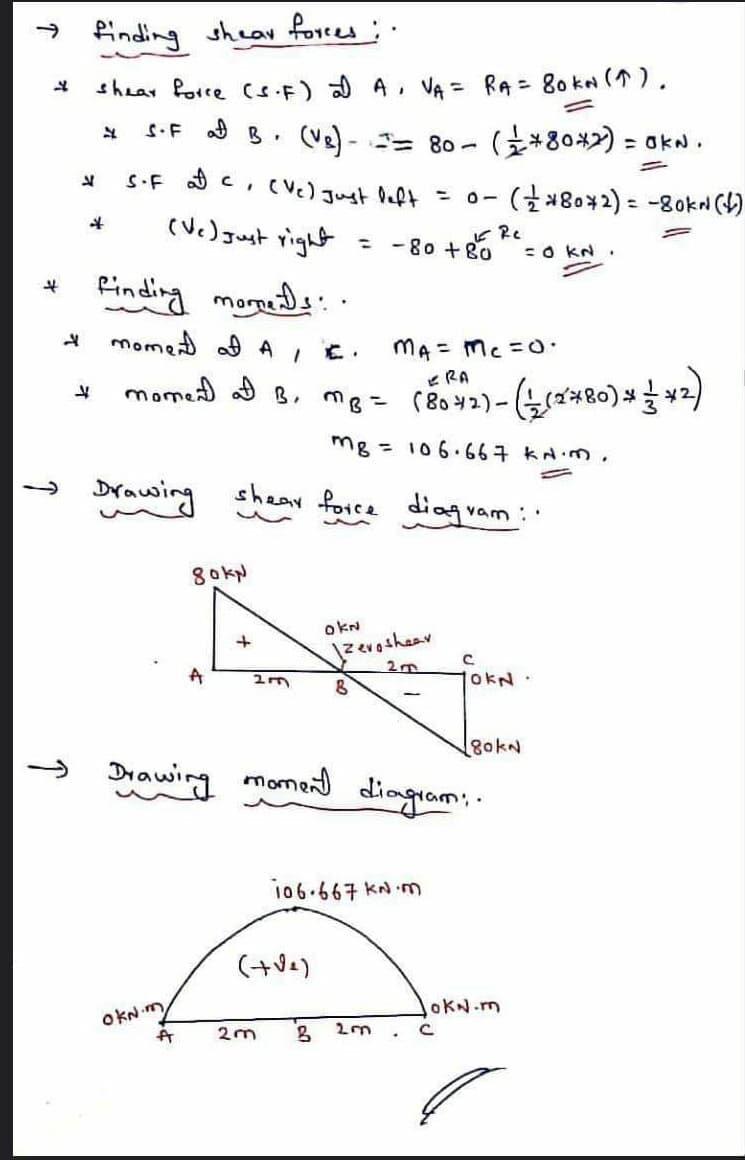 → finding shear forces :.
* shear force (S.F) at A, VA = RA = 80 kN (↑).
* S.F at B, (VB) - = 80 - (1/2 * 80 * 2) = 0 kN.
* S.F at C, (Vc) Just left = 0 - (1/2 * 80 * 2) = -80 kN (↓)
* (Vc) Just right = -80 + 80 ↙ Rc = 0 kN.
* finding moments :.
* moment at A, C. MA = Mc = 0.
* moment at B, mB = (80 * 2) ↙ RA - (1/2 (2 * 80) * 1/3 * 2)
mB = 106.667 kN.m.
→ Drawing shear force diagram :.
80 kN
+
0 kN
Zero shear
A
2m
B
2m
-
C
0 kN.
80 kN
→ Drawing moment diagram :.
106.667 kN.m
(+ve)
0 kN.m
0 kN.m
A
2m
B
2m.
C